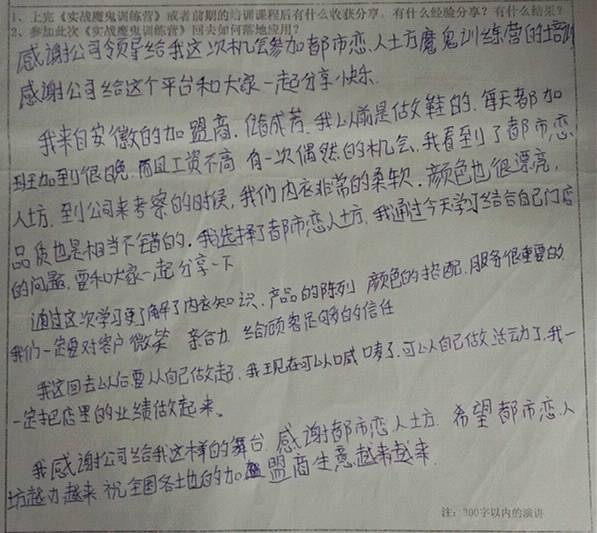 1、上完《实战魔鬼训练营》或者前期的培训课程后有什么收获分享，有什么经验分享？有什么结果？
2、参加此次《实战魔鬼训练营》回去如何落地应用？
感谢公司领导给我这次机会参加都市恋人土方魔鬼训练营的培训
感谢公司给这个平台和大家一起分享快乐
我来自安徽的加盟商，储成芳，我以前是做鞋的，每天都加
班加到很晚，而且工资不高 有一次偶然的机会，我看到了都市恋
人土方，到公司来考察的时候，我们内衣非常的柔软，颜色也很漂亮，
品质也是相当不错的，我选择了都市恋人土方，我通过今天学习结合自己门店
的问题，要和大家一起分享一下
通过这次学习更了解了内衣知识、产品的陈列 颜色的搭配，服务很重要的
我们一定要对客户微笑 亲合力 给顾客足够的信任
我这回去以后要从自己做起，我现在可以喊唛了，可以自己做活动了，我一
定把店里的业绩做起来。
我感谢公司给我这样的舞台，感谢都市恋人土方 希望都市恋人
坊越办越来，祝全国各土也的加盟商生意越来越来
注：300字以内的演讲